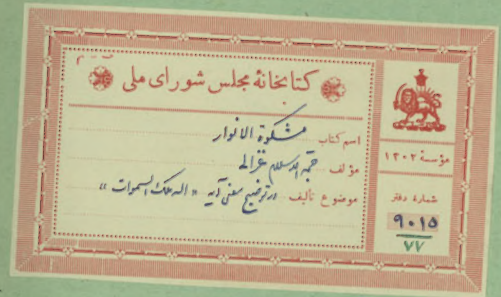 کتابخانهٔ مجلس شورای ملی
اسم کتاب مشکوة الانوار
مؤلف حجة الاسلام غزالی
موضوع تألیف در توضیح معنی آیه "الله ملک السموات"
مؤسسهٔ ۱۳۰۲
شمارهٔ دفتر
۹۰۱۵
۷۷